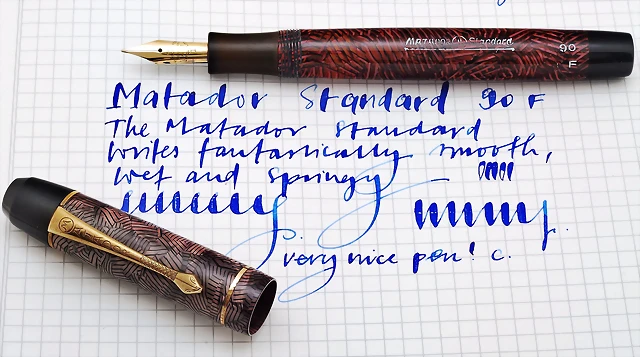 Matador Standard
90
F
Matador Standard 90 F
The Matador Standard
writes fantastically smooth,
wet and springy –
very nice pen! c.